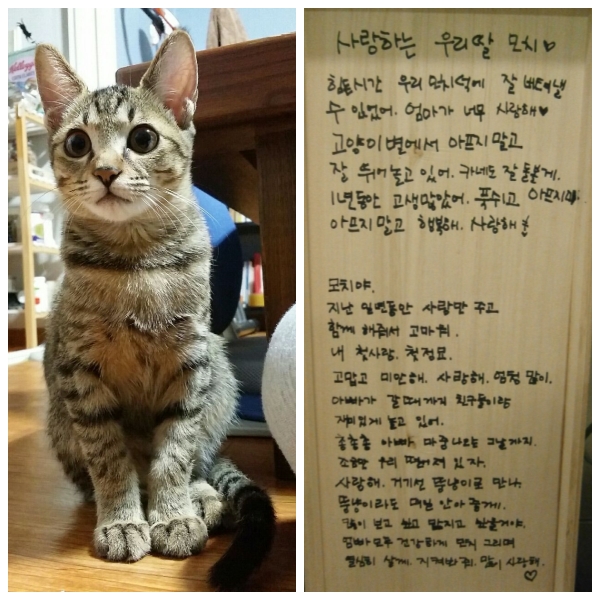 사랑하는 우리딸 모치♡
힘든시간 우리 모치덕에 잘 버텨낼
수 있었어. 엄마가 너무 사랑해♥
고양이별에서 아프지말고
잘 뛰어놀고 있어. 카네도 잘 돌볼게.
1년동안 고생많았어. 푹쉬고 아프지마.
아프지말고 행복해. 사랑해
모치야.
지난 일년동안 사랑만 주고
함께 해줘서 고마워.
내 첫사랑. 첫정묘.
고맙고 미안해. 사랑해. 엄청 많이.
아빠가 갈때까지 친구들이랑
재미있게 놀고 있어.
총총총 아빠 마중나오는 그날까지.
조금만 우리 떨어져 있자.
사랑해. 거기선 뚱냥이로 만나.
뚱냥이라도 매일 안아줄게.
많이 보고 싶고 만지고 싶을거야.
엄빠모두 건강하게 모치 그리며
열심히 살게. 지켜봐줘. 많이 사랑해.
♡